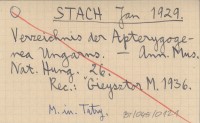 STACH Jan 1929.
Verzeichnis der Apterygoge-
nea Ungarns. — Ann. Mus.
Nat. Hung. 26.
Rec.: Gieysztor M. 1936.
M. in. Tatry.